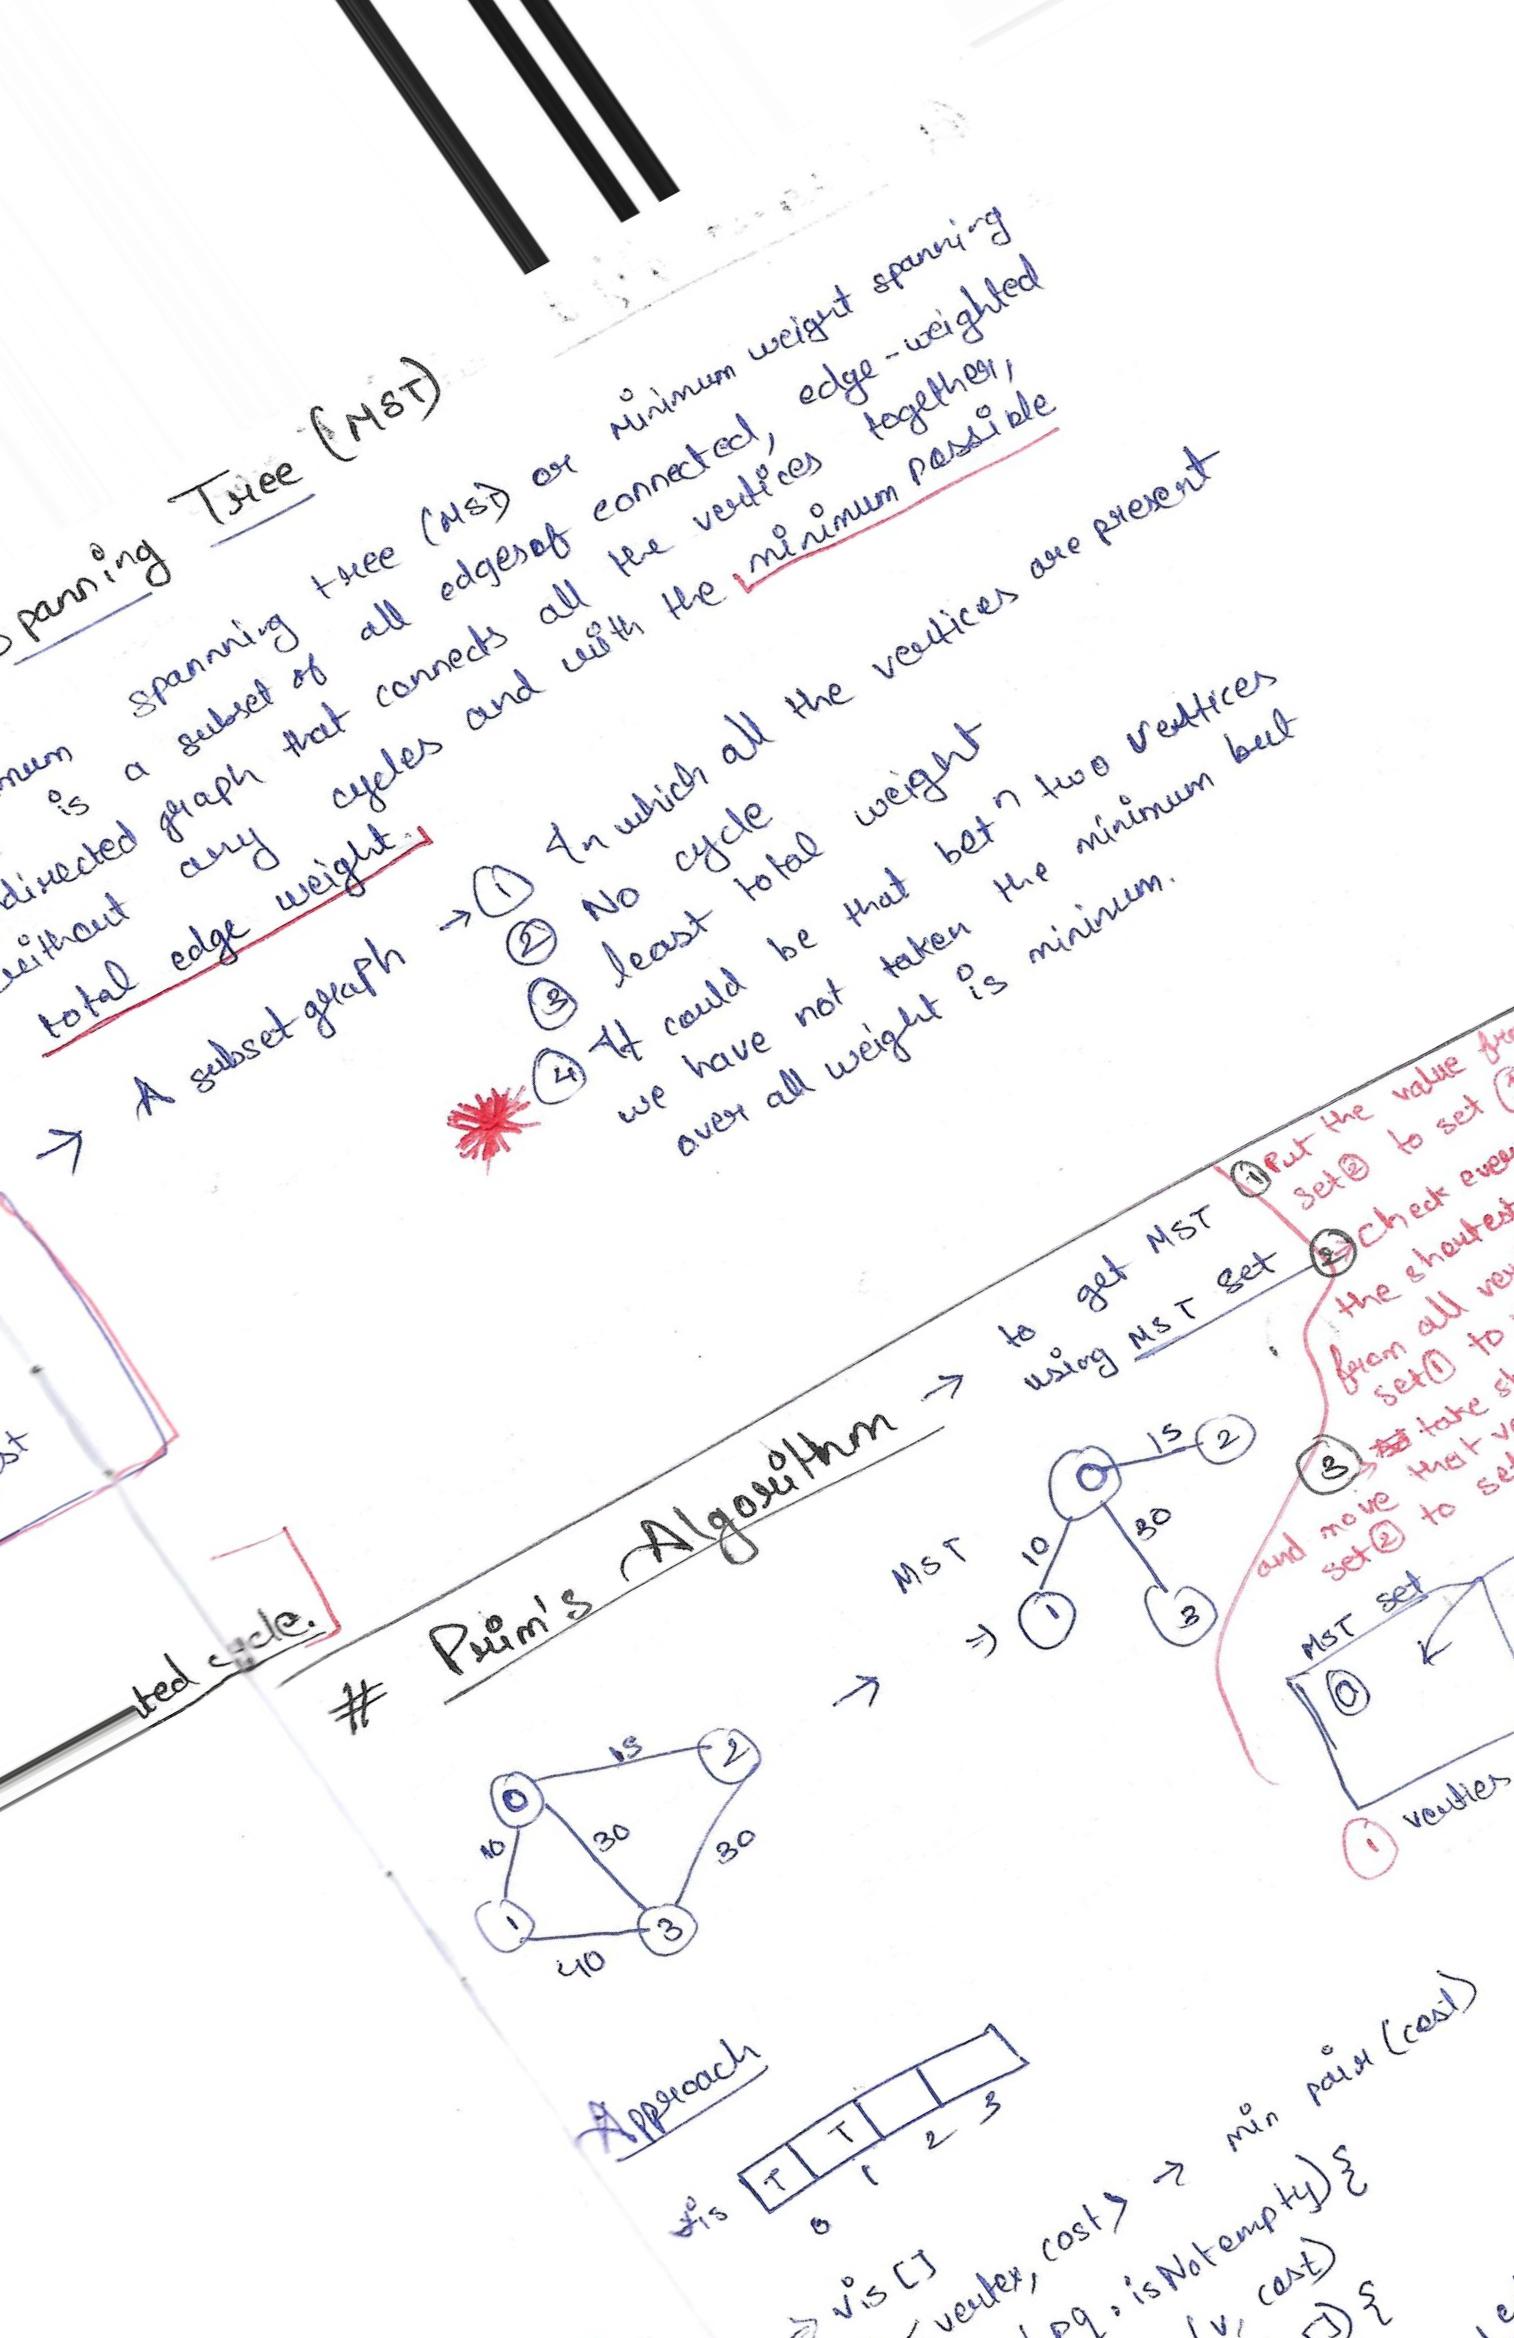 Spanning Tree (MST)
spannning tree (MST) or minimum weight spanning
is a subset of all edges of connected, edge-weighted
directed graph that connects all the vertices together,
without any cycles and with the minimum possible
total edge weight.
→ A subset graph → ① In which all the vertices are present
② No cycle
③ least total weight
④ It could be that betⁿ two vertices
we have not taken the minimum but
over all weight is minimum.
ted cycle.
# Prim's Algorithm → to get MST
using MST set
① Put the value
set ② to set
② → Check
the shortest
from all
set ① to
③ → take
that
and move
set ② to
MST
⇒ 0 15 2
10 30
1 3
→
MST set
0
① verties
0 15 2
10 30 30
1 40 3
Approach
vis T T
0 1 2 3
→ vis []
vertex, cost> → min pair (cost)
pq. isNotempty) {
(v, cost)